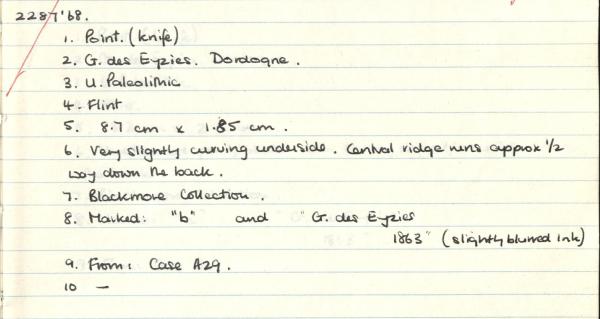 2287'68.
1. Point. (knife)
2. G. des Eyzies. Dordogne.
3. U. Paleolithic
4. Flint
5. 8.7 cm x 1.85 cm.
6. Very slightly curving underside. Central ridge runs approx 1/2
way down the back.
7. Blackmore Collection.
8. Marked: "b" and "G. des Eyzies
1863" (slightly blurred ink)
9. From: Case A29.
10 —